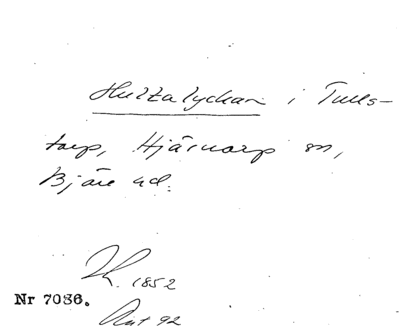 Hultalyckan i Tuls-
torp, Hjärnarp sn,
Bjäre hd.
1852
Nr 7086.
Avt 92